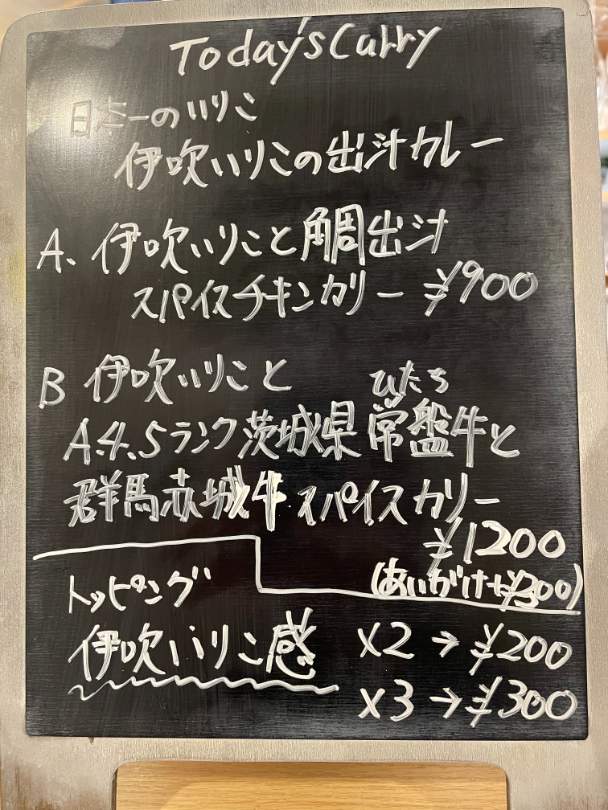 Today's Curry
日本一のいりこ
伊吹いりこの出汁カレー
A、伊吹いりこと鯛出汁
スパイスチキンカリー ¥900
B 伊吹いりこと
ひたち
A.4.5ランク茨城県常盤牛と
群馬赤城牛スパイスカリー
¥1200
(あいがけ+¥300)
トッピング
伊吹いりこ感 ×2→¥200
×3→¥300